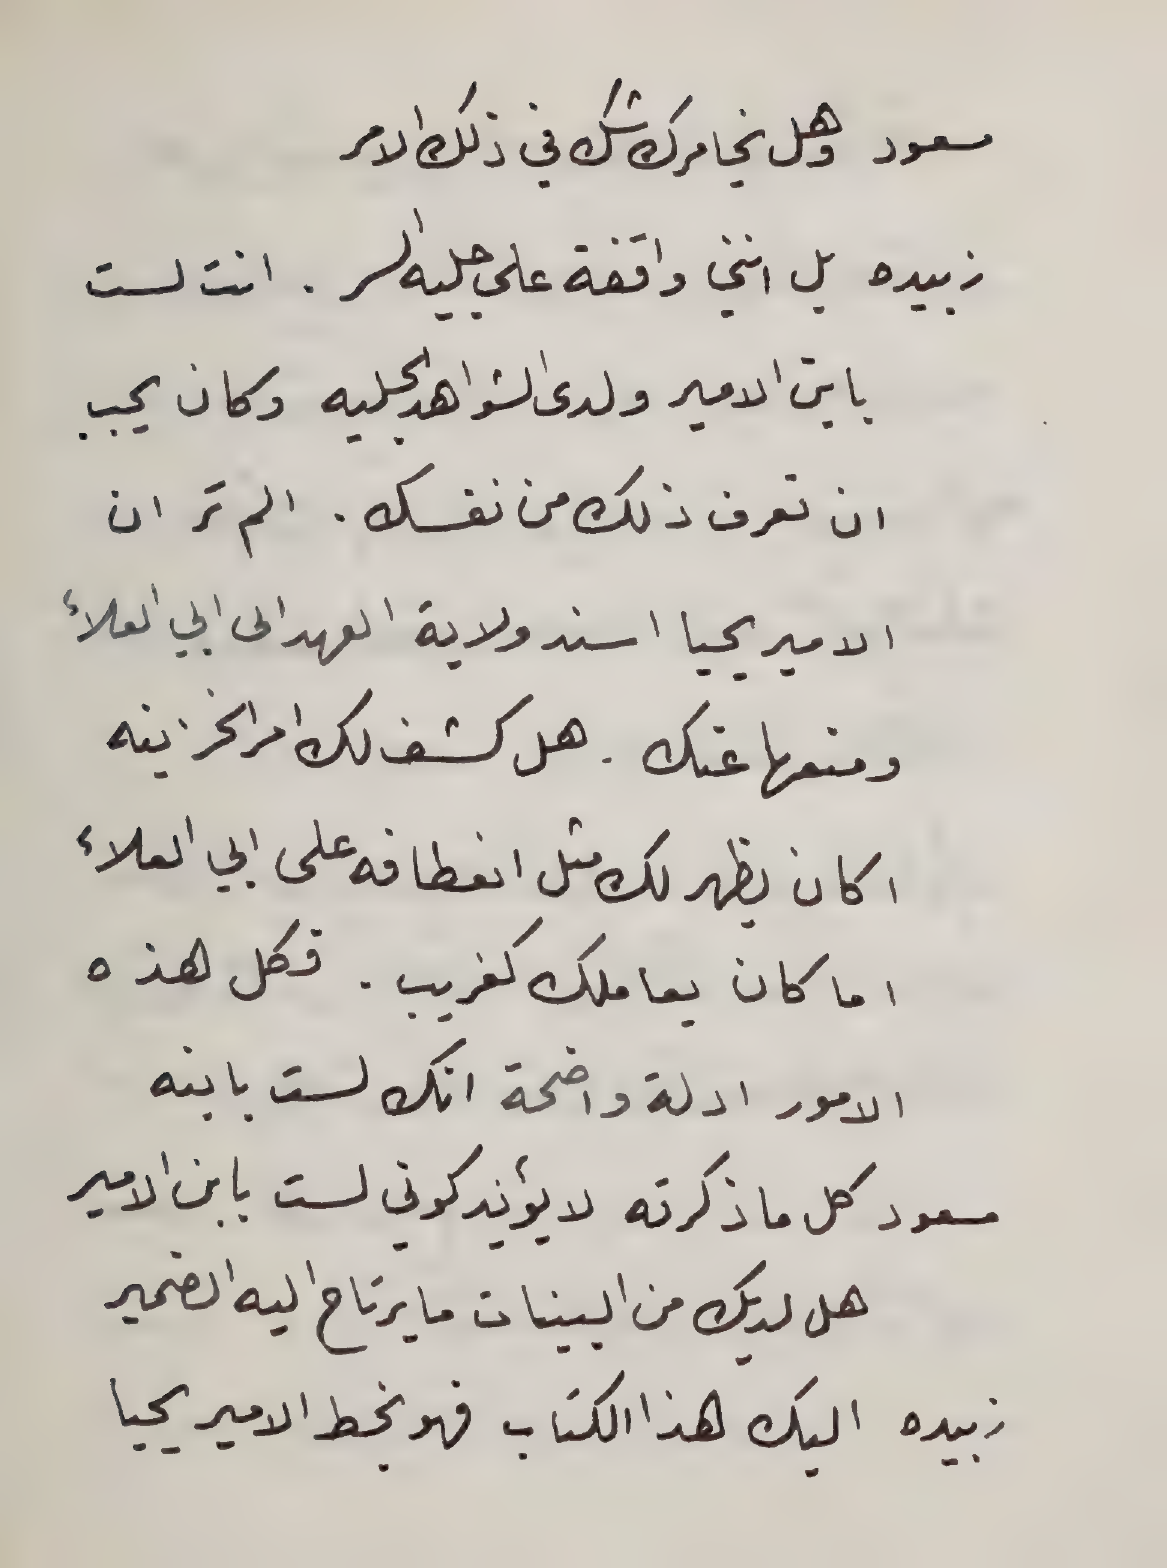 مسعود وهل يخامرك شك في ذلك الامر
زبيده بل انني واقفة على جلية السر . انت لست
بابن الامير ولدى الشواهد الجليه وكان يجب
ان تعرف ذلك من نفسك . الم تر ان
الامير يحيا اسند ولاية العهد الى ابي العلاء
ومنعها عنك . هل كشف لك امر الخزينه
اكان يظهر لك مثل انعطافه على ابي العلاء
اما كان يعاملك كغريب . فكل هذه
الامور ادلة واضحة انك لست بابنه
مسعود كل ما ذكرته لا يؤيد كوني لست بابن الامير
هل لديك من البينات ما يرتاح اليه الضمير
زبيده اليك هذا الكتاب فهو بخط الامير يحيا